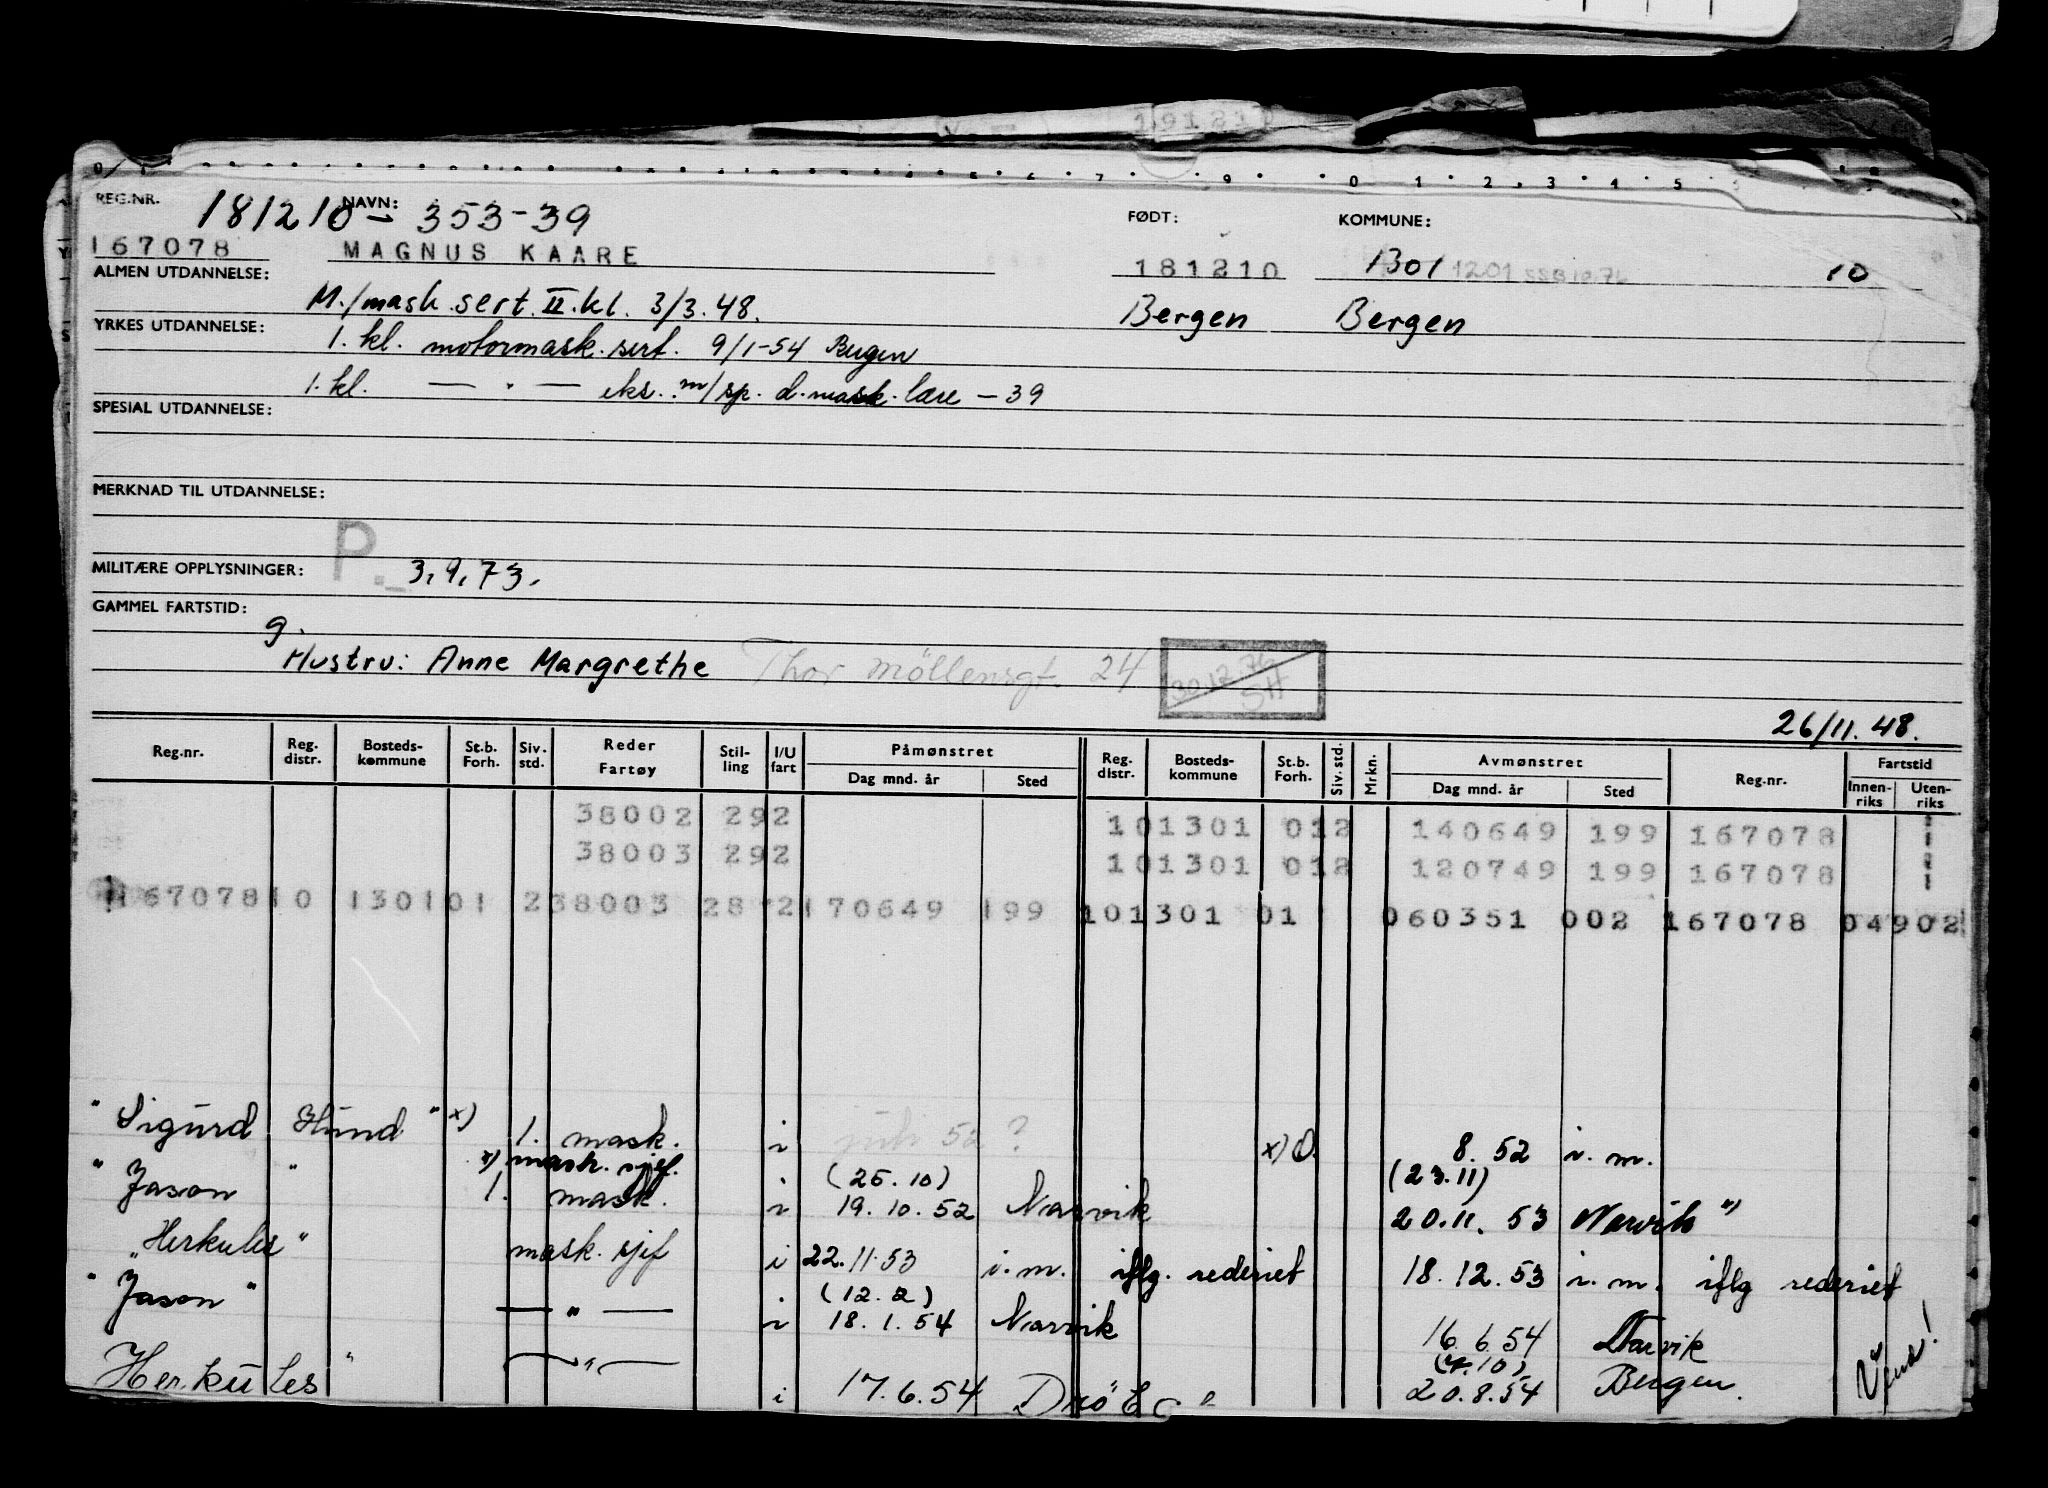 19121
0 1 6 7 9 0 1 2 3 4 5
REG.NR. 181210 - NAVN: 353-39 FØDT: KOMMUNE:
167078 MAGNUS KAARE 181210 1301 1201 SSB 10.76 10
ALMEN UTDANNELSE: M./mask.sert. II.kl. 3/3.48. Bergen Bergen
YRKES UTDANNELSE: 1. kl. motormask.sert. 9/1-54 Bergen
1. kl. — " — eks. m/sp. d.mask.lære - 39
SPESIAL UTDANNELSE:
MERKNAD TIL UTDANNELSE:
MILITÆRE OPPLYSNINGER: P. 3.9.73.
GAMMEL FARTSTID:
g.
Hustru: Anne Margrethe Thor Möllersgt. 24 30.12.76 SH
26/11.48.
Reg.nr. Reg. distr. Bosteds-kommune St.b. Forh. Siv. std. Reder Fartøy Stil-ling I/U fart Påmønstret Dag mnd. år Sted Reg. distr. Bosteds-kommune St.b. Forh. Siv. std. Mrkn. Avmønstret Dag mnd. år Sted Reg.nr. Fartstid Innen-riks Uten-riks
38002 292 101301 012 140649 199 167078
38003 292 101301 012 120749 199 167078
16707810 130101 238003 28 2170649 199 101301 01 060351 002 167078 04902
" Sigurd Hund " x) 1. mask. i juli 52 ? x) O. 8. 52 i. m.
x) mask. sjef. (25.10) (23.11)
" Jason " 1. mask. i 19.10.52 Narvik 20.11.53 Narvik x)
" Herkules " mask. sjef i 22.11.53 i.m. iflg. rederiet 18.12.53 i.m. iflg rederiet
(12.2)
" Jason " — " — i 18.1.54 Narvik 16.6.54 Narvik
(4.10)
Herkules " — " — i 17.6.54 20.8.54 Bergen. Vend!